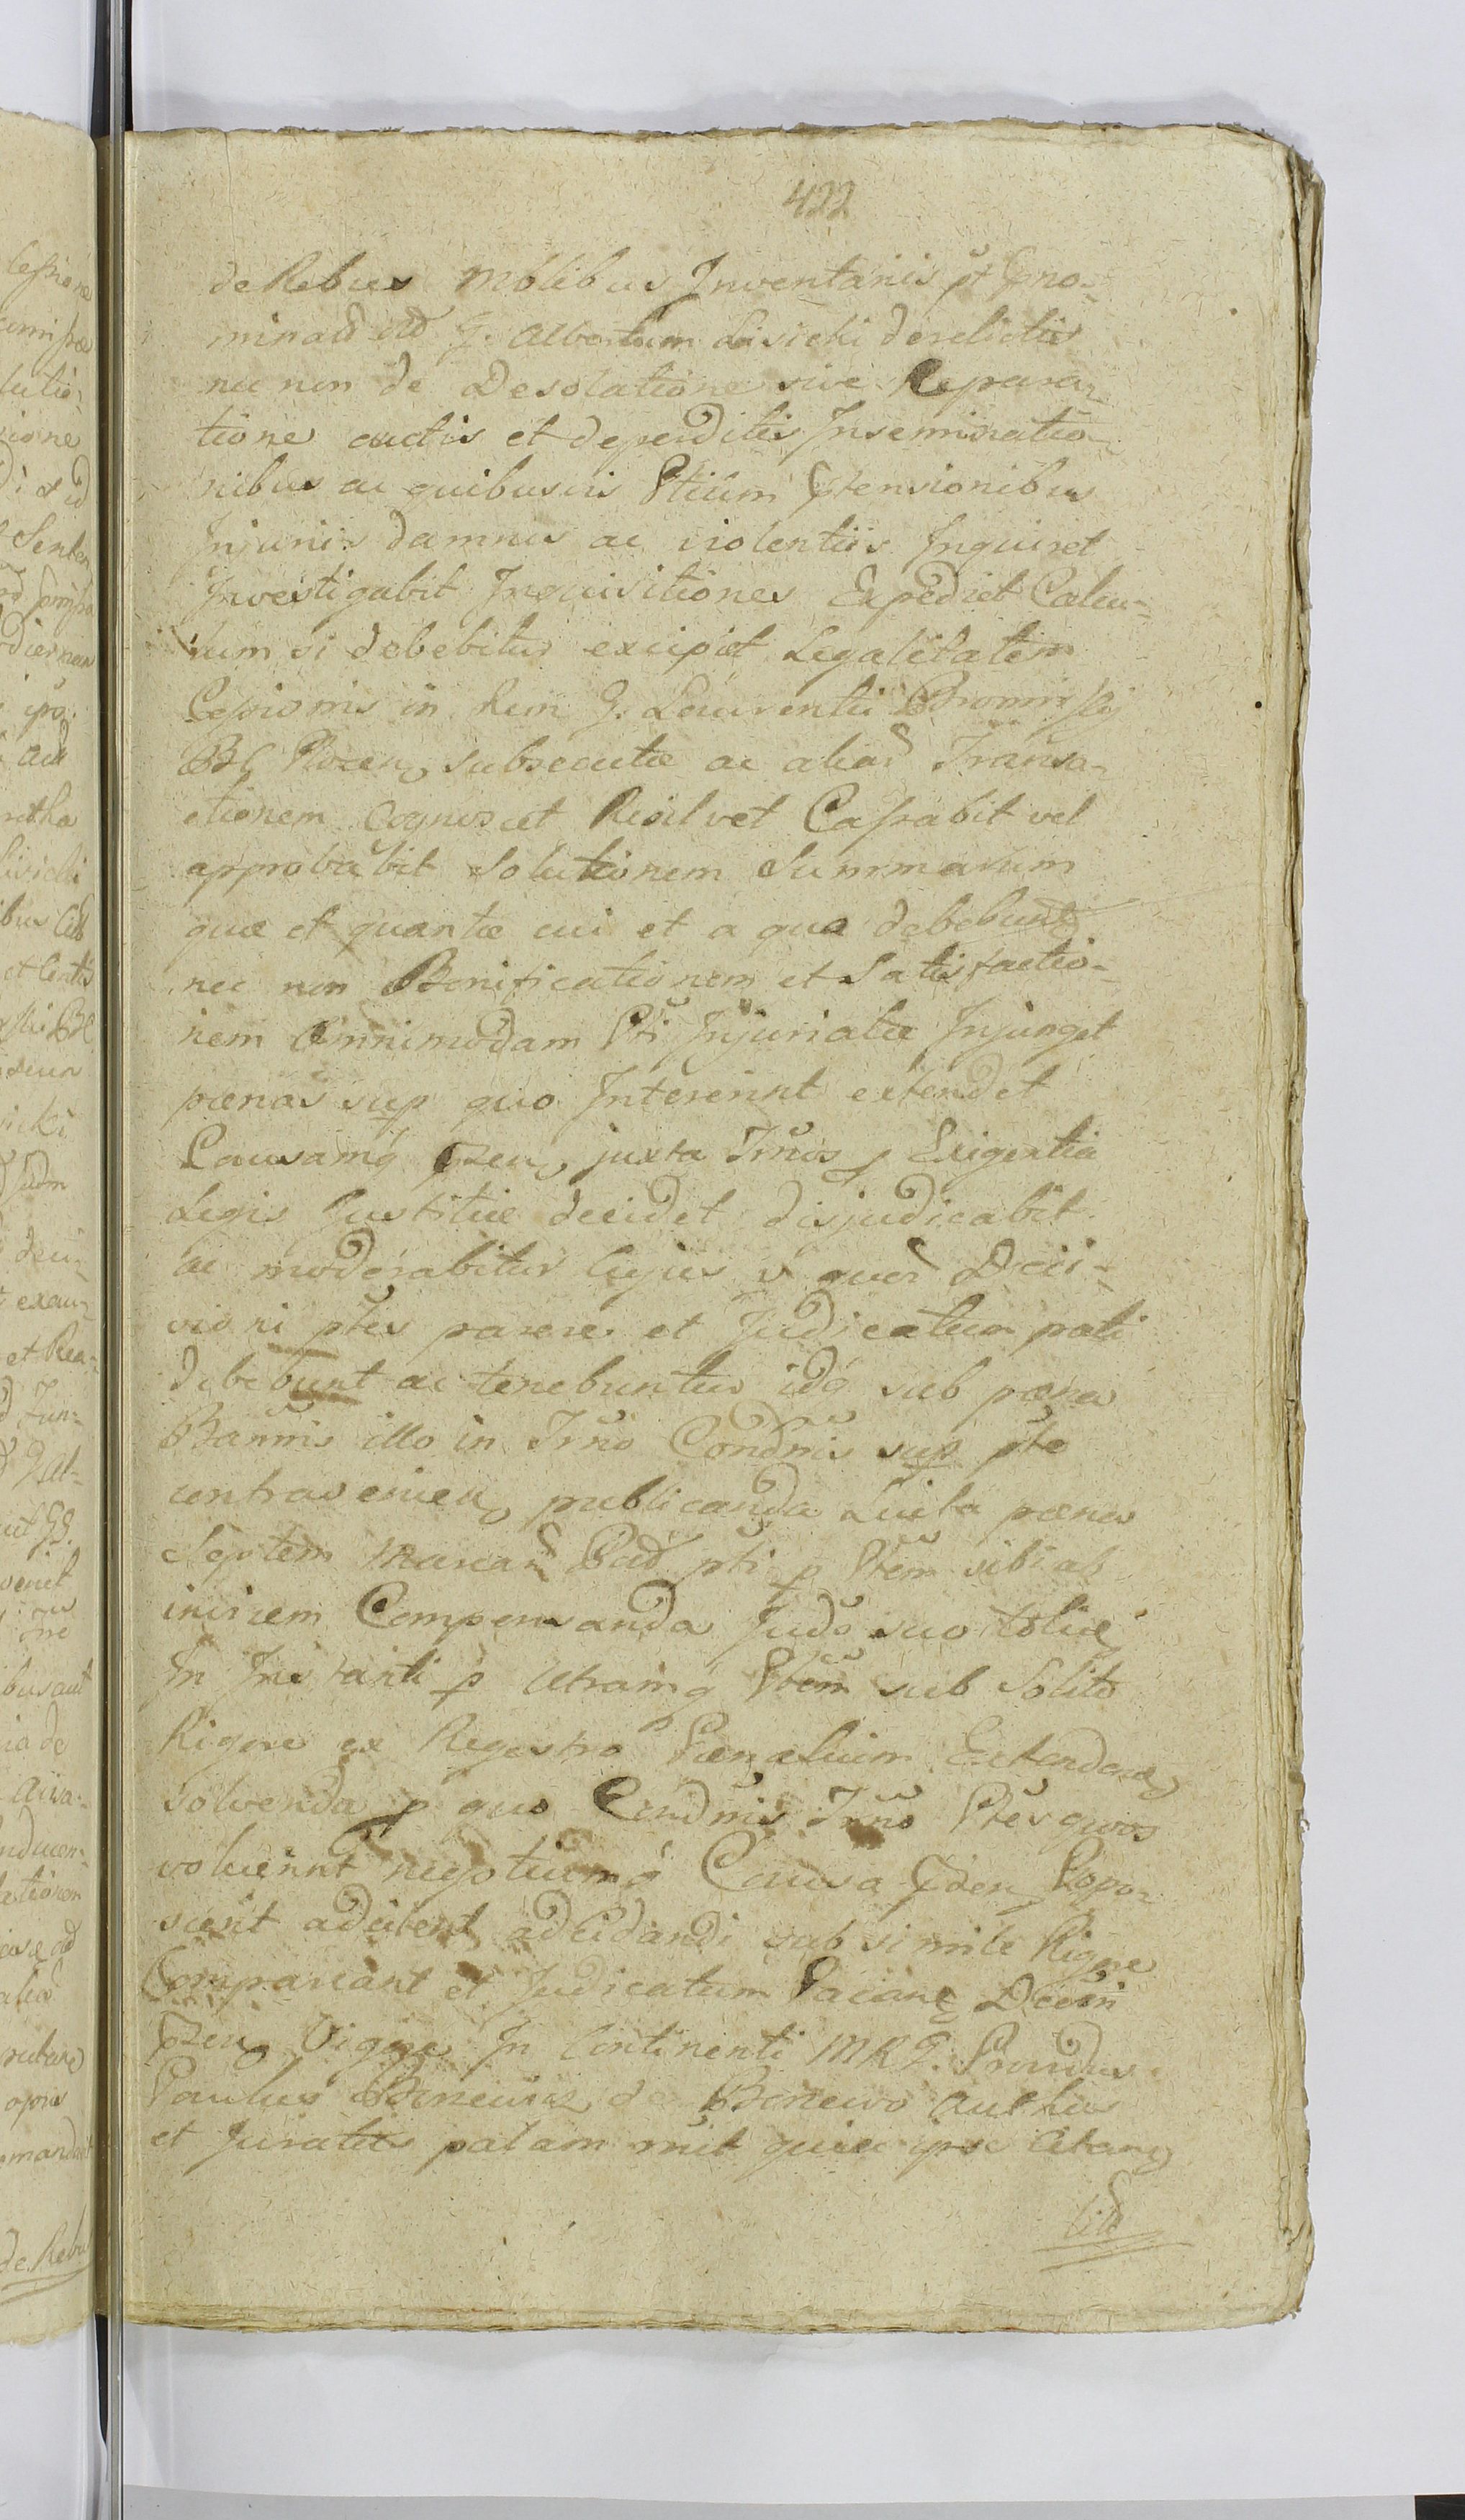 422
de Rebus Mobilibus Inventariis
G. Albertum Lisicki derelictis
nec non de Desolatione sive Repara-
tione auctis et deperditis Inseminatio-
nibus ac quibusvis Ptium Ptensionibus
Injuriis damnis ac violentiis Inquiret
Investigabit Inquisitiones Expediet Calcu-
lum si debebitur excipiet Legalitatem
Cessionis in Rem G. Laurentii
subsecutæ ac aliar Transa-
ctionem Cognoscet Resolvet Cassabit vel
approbabit Solutionem Summarum
quæ et quantæ cui et a quo debebunt
nec non Bonificationem et Satisfactio-
nem Omnimodam Pti Injuriatæ Injunget
pænas sup quo Intererint extendet
Causamq pñtem juxta Trños p Exigentia
Legis Justitiæ decidet disjudicabit
ac moderabitur Cujus v quor Deci-
sioni ptes parere et Judicatum pati
debebunt ac tenebuntur idq sub pæna
Bannis illo in Trño Condnis sup pte
contravenien publicanda Luita pæna
Septem Marcar Pud pti p Ptem sibi ab
invicem Compensanda Judo suo
In Instanti p Utramq Ptem sub Solito
Rigore ex Regestro Pænalium Extenden
solvenda p quo Condnis Trño Ptes quos
voluerint negotiumq Causa pñtem Popo-
scerit adcitent adCitandi sub simile Rigore
Compareant et Judicatum Paciant Decreti
pñtis Vigore In Continenti MRG. Providus
Paulus de Benewo
et Juratus palam quia ipse Citaõn